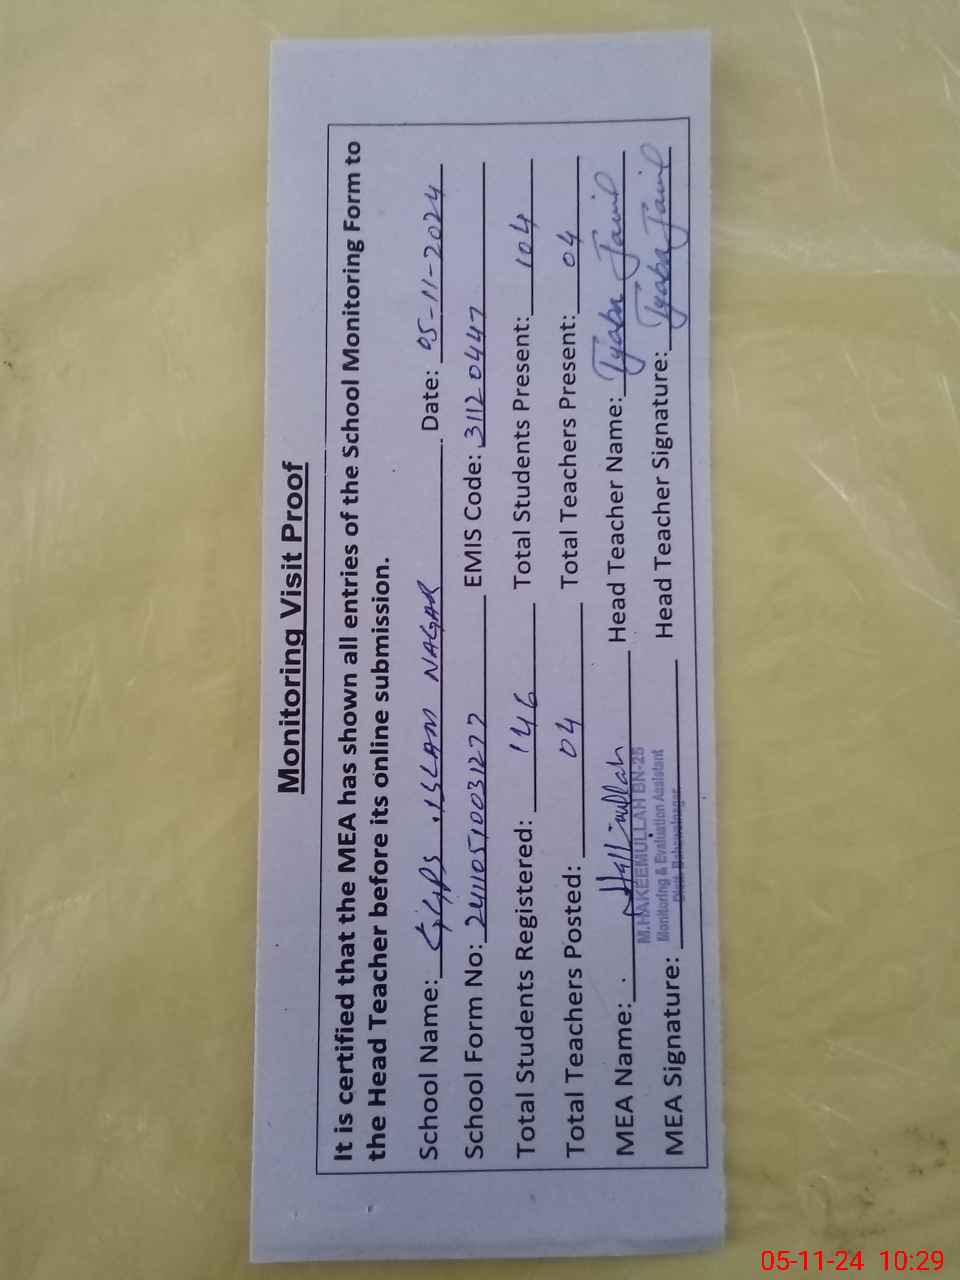 Monitoring Visit Proof
It is certified that the MEA has shown all entries of the School Monitoring Form to
the Head Teacher before its online submission.
School Name: GGPS . ISLAM NAGAR Date: 05-11-2024
School Form No: 2411051003127 EMIS Code: 31120447
Total Students Registered: 146 Total Students Present: 104
Total Teachers Posted: 04 Total Teachers Present: 04
MEA Name: Head Teacher Name: Tyaba Jamil
M.HAKEEMULLAH BN-25
Monitoring & Evaluation Assistant
Distt. Bahawalnagar
MEA Signature: Head Teacher Signature: Tyaba Jamil
05-11-24 10:29